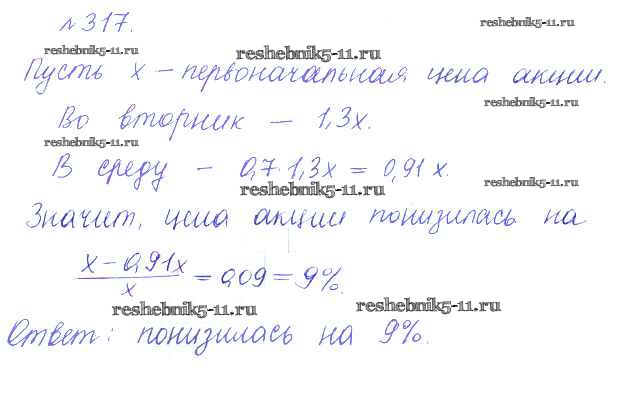 №317.
reshebnik5-11.ru
reshebnik5-11.ru
reshebnik5-11.ru
Пусть x – первоначальная цена акции.
reshebnik5-11.ru
Во вторник – 1,3x.
reshebnik5-11.ru
В среду – 0,7·1,3x = 0,91x.
reshebnik5-11.ru
reshebnik5-11.ru
Значит, цена акции понизилась на
x – 0,91x / x = 0,09 = 9%.
reshebnik5-11.ru
reshebnik5-11.ru
Ответ: понизилась на 9%.